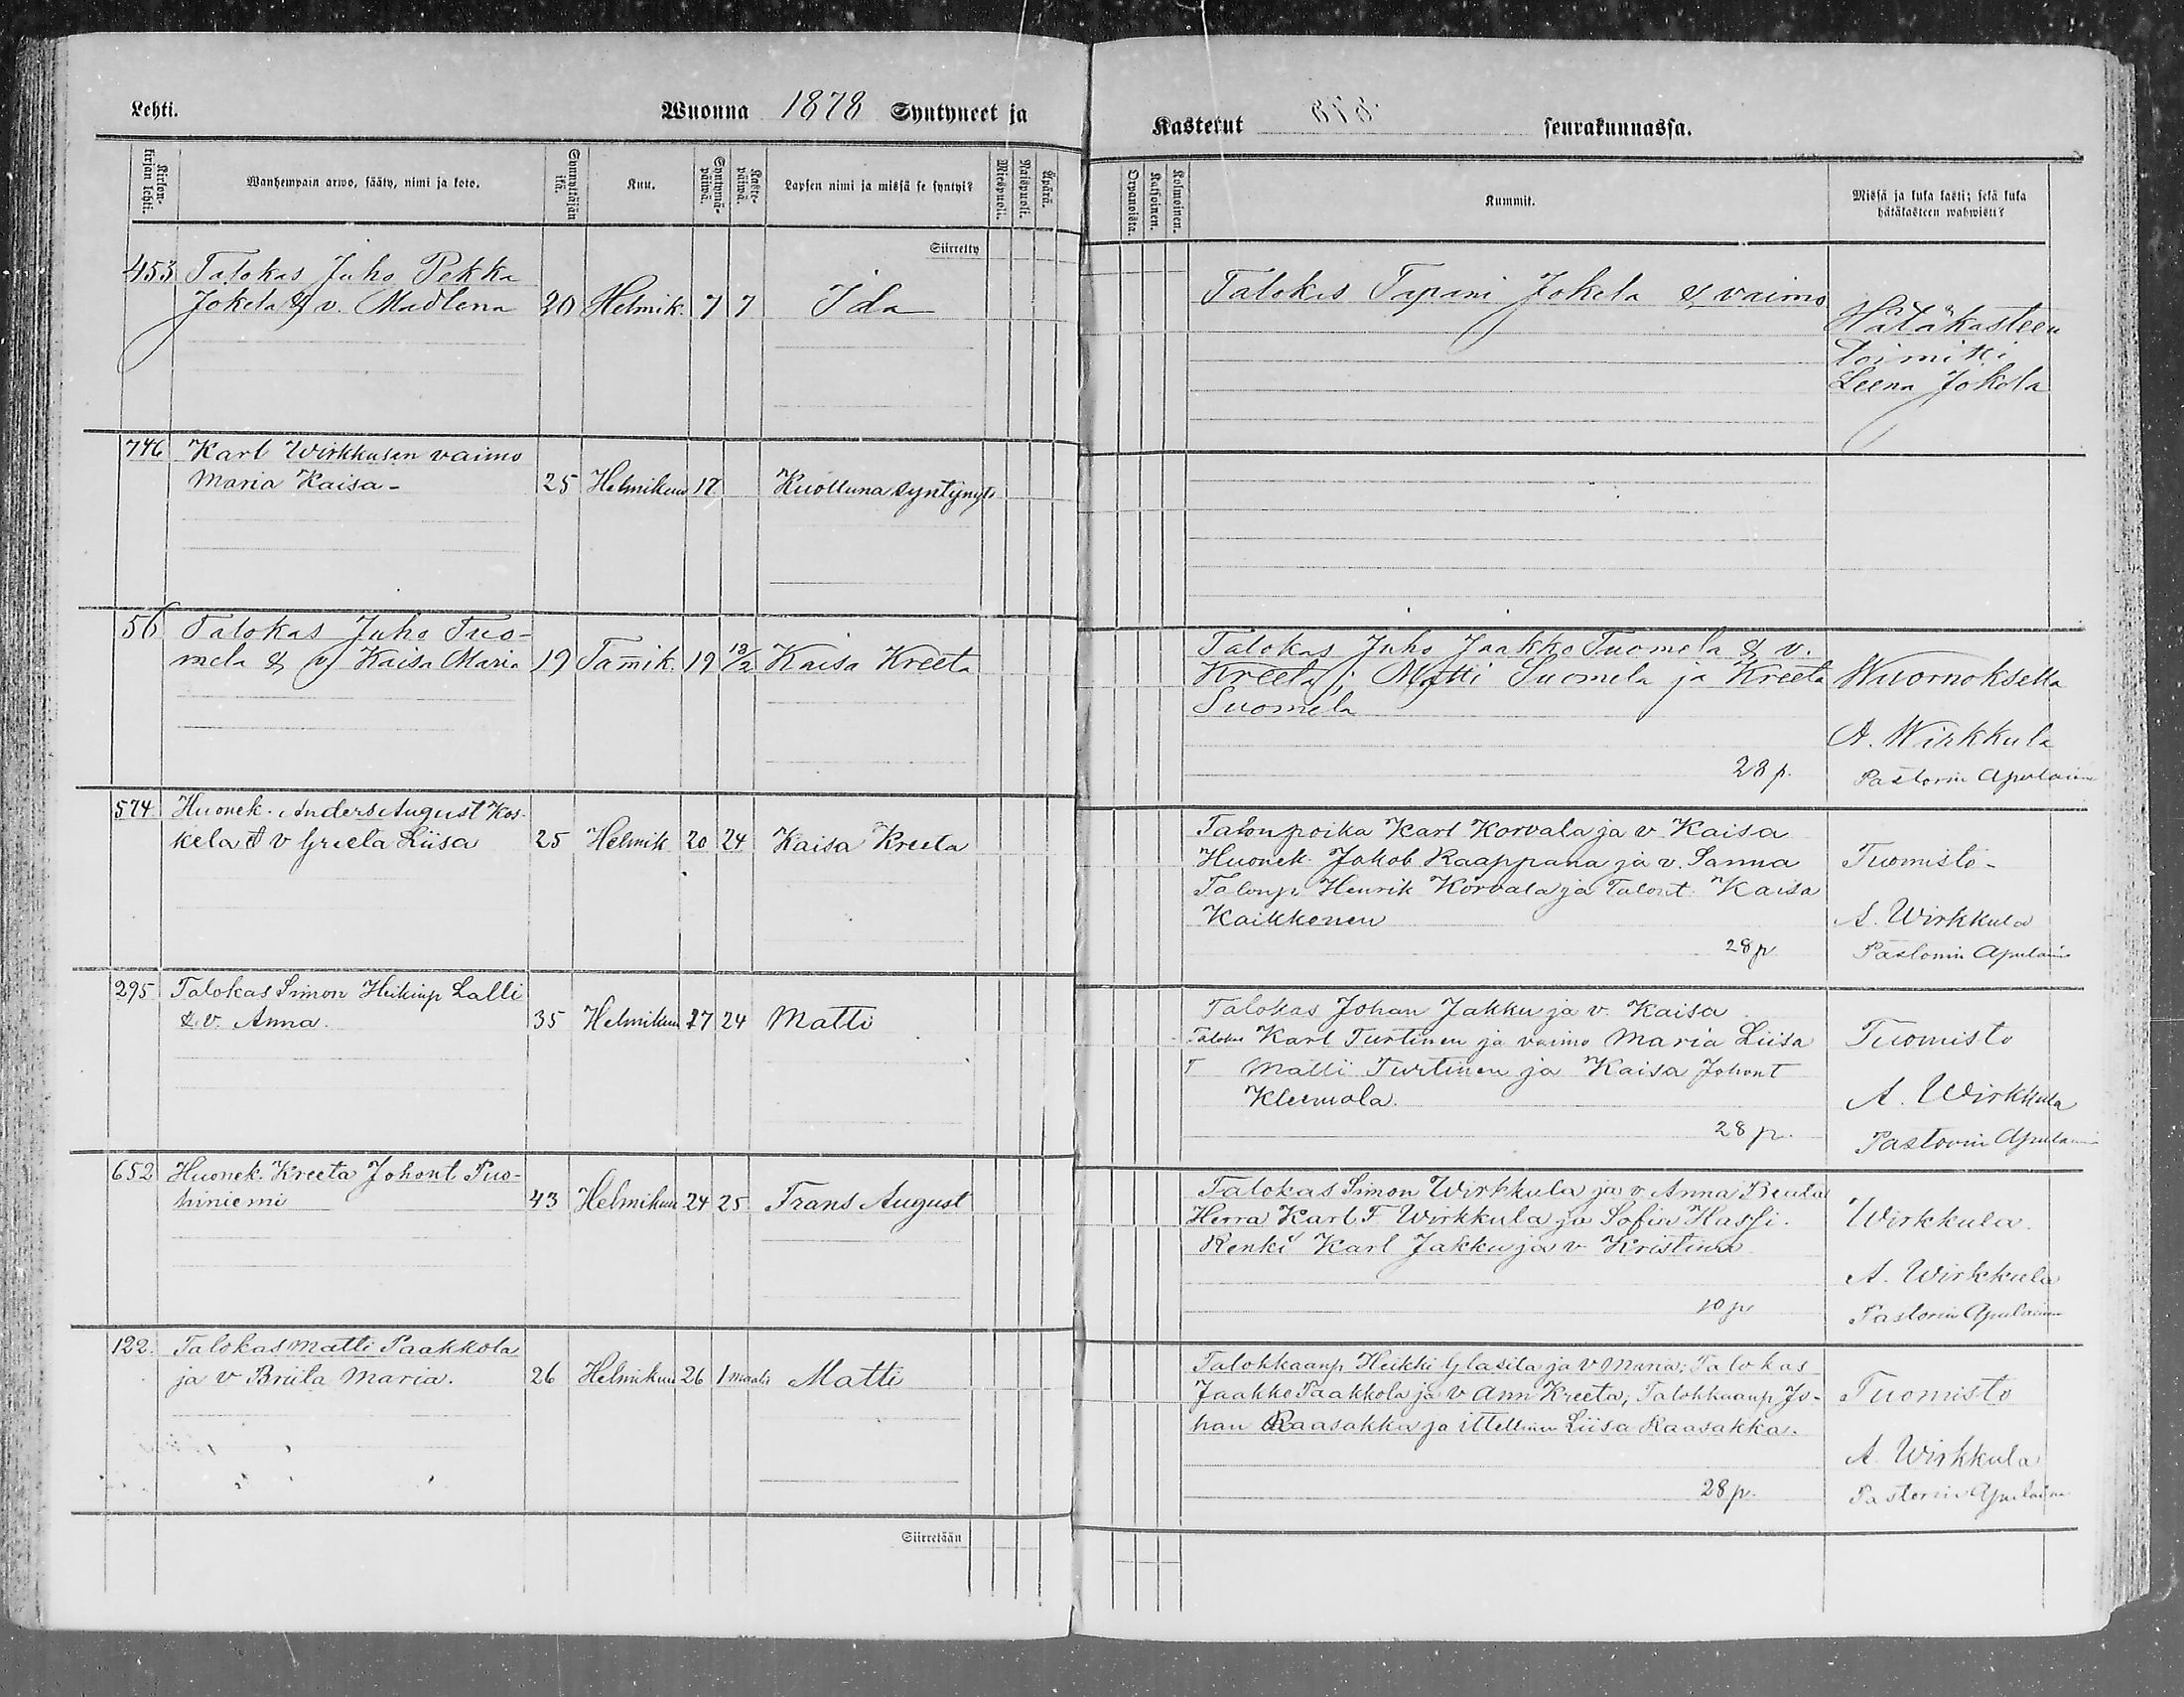 Lehti.
Wuonna 1878 Syntyneet ja
Kirkonkirjan lehti.
Wanhempain arwo, sääty, nimi ja koto.
Synnyttäjän ikä.
Kuu.
Syntymäpäivä.
Kastepäivä.
Lapsen nimi ja missä se syntyi?
Miespuoli.
Naispuoli.
Äpärä.
Siirretty
453 Talokas Juho Pekka
Jokela & v. Madlena 20 Helmik. 7 7 Ida
746 Karl Wirkkusen vaimo
Maria Kaisa- 25 Helmikuu 17 Kuolluna syntynyt
56 Talokas Juho Tuo-
mela & v Kaisa Maria 19 Tamik. 19 13/2 Kaisa Kreeta
574 Huonek. Anders August Kos-
kela & v Greeta Liisa 25 Helmik 20 24 Kaisa Kreeta
295 Talokas Simon Heikinp Lalli
& v. Anna. 35 Helmikuu 17 24 Matti
652 Huonek. Kreeta Johont Tuo-
hiniemi 43 Helmikuu 24 25 Frans August
122. Talokas Matti Paakkola
ja v Briita Maria. 26 Helmikuu 26 1 maalis Matti
Siirretään
Kastetut 878 seurakunnassa.
Orpanoista.
Kaksoinen.
Kolmoinen.
Kummit.
Missä ja kuka kasti; sekä kuka
hätäkasteen wahwisti?
Talokas Tapani Jokela & vaimo
Hätäkasteen
toimitti
Leena Jokela
Talokas Juho Jaakko Tuomela & v.
Kreeta; Matti Tuomela ja Kreeta Wuornoksella
Tuomela
A. Wirkkula
28 p. Pastorin Apulainen
Talonpoika Karl Korvala ja v Kaisa
Huonek. Jakob Raappana ja v. Sanna Tuomisto-
Talonp Henrik Korvala ja Talont. Kaisa
Kaikkonen A. Wirkkula
28 p Pastorin Apulain
Talokas Johan Jakku ja v. Kaisa
Talokas Karl Turtinen ja vaimo Maria Liisa Tuomisto
T Matti Turtinen ja Kaisa Johont
Kleemola. A. Wirkkula
28 p. Pastorin Apulain
Talokas Simon Wirkkula ja v Anna Beata
Herra Karl F. Wirkkula ja Sofia Hassi. Wirkkula.
Renki Karl Jakku ja v Kristina
A. Wirkkula
10 p Pastorin Apulainen
Talokkaanp Heikki Glasila ja v Maria; Talokas
Jaakko Paakkola ja v Ann Kreeta; Talokkaanp Jo- Tuomisto
han Raasakka ja ittellinen Liisa Raasakka.
A. Wirkkula
28 p. Pastorin Apulainen